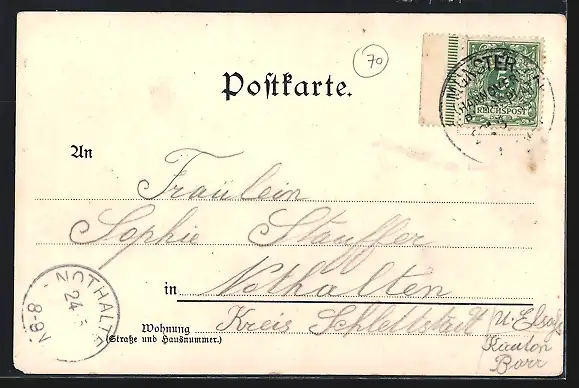 70
Postkarte.
REICHSPOST
An
Fräulein
Sophie Stauffer
in Nothalten
Kreis Schlettstadt U. Elsaß
Kanton
Barr
Wohnung
(Straße und Hausnummer.)
NOTHALTEN
24
8-9N